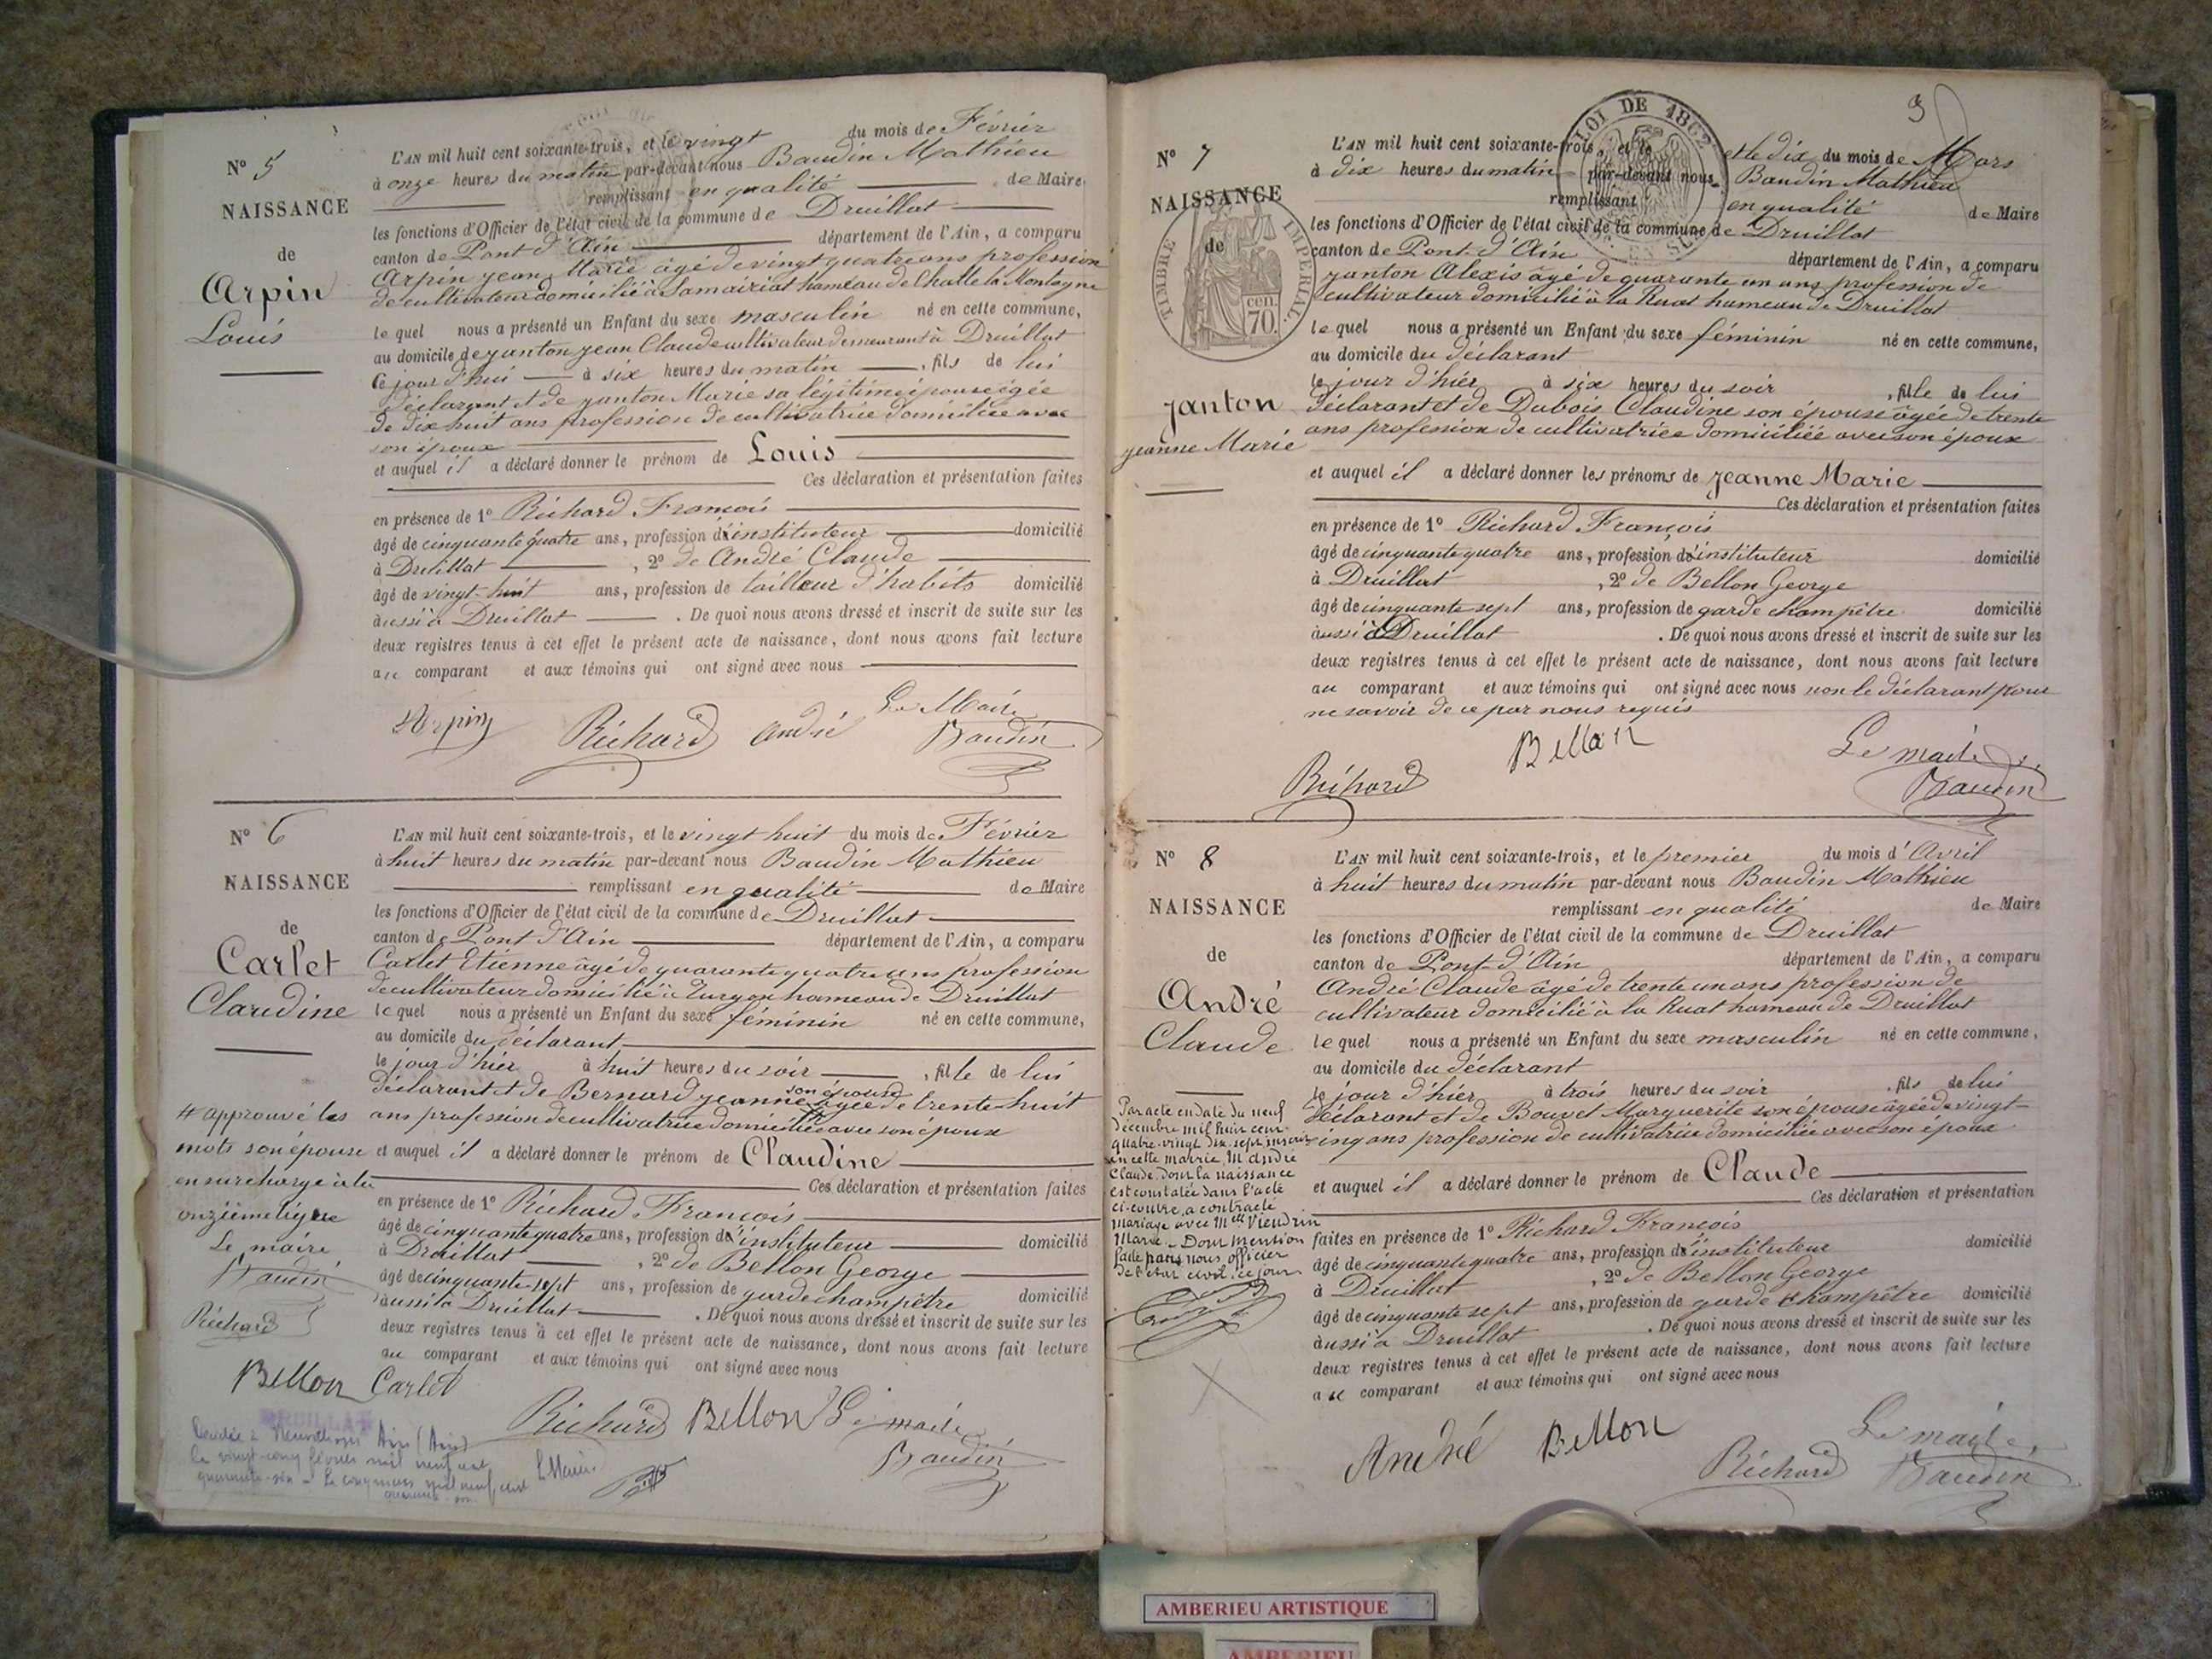 N° 5
NAISSANCE
de
Arpin
Louis
L'AN mil huit cent soixante-trois, et le vingt du mois de Février
à onze heures du matin par-devant nous Baudin Mathieu
remplissant en qualité de Maire
les fonctions d'Officier de l'état civil de la commune de Druillat
canton de Pont d'Ain département de l'Ain, a comparu
Arpin Jean Marie âgé de vingt quatre ans profession
de cultivateur domicilié à Samairiat hameau de Challe la Montagne
lequel nous a présenté un Enfant du sexe masculin né en cette commune,
au domicile de Janton Jean Claude cultivateur demeurant à Druillat
Ce jour d'hui à six heures du matin, fils de lui
déclarant et de Janton Marie sa légitime épouse âgée
de dix huit ans profession de cultivatrice domiciliée avec
son époux
et auquel il a déclaré donner le prénom de Louis
Ces déclaration et présentation faites
en présence de 1° Richard François
âgé de cinquante quatre ans, profession d'instituteur domicilié
à Druillat, 2° de André Claude
âgé de vingt-huit ans, profession de tailleur d'habits domicilié
aussi à Druillat. De quoi nous avons dressé et inscrit de suite sur les
deux registres tenus à cet effet le présent acte de naissance, dont nous avons fait lecture
au comparant et aux témoins qui ont signé avec nous
Arpin Richard André Le Maire
Baudin
N° 6
NAISSANCE
de
Carlet
Claudine
L'AN mil huit cent soixante-trois, et le vingt huit du mois de Février
à huit heures du matin par-devant nous Baudin Mathieu
remplissant en qualité de Maire
les fonctions d'Officier de l'état civil de la commune de Druillat
canton de Pont d'Ain département de l'Ain, a comparu
Carlet Etienne âgé de quarante quatre ans profession
de cultivateur domicilié à Turgon hameau de Druillat
lequel nous a présenté un Enfant du sexe féminin né en cette commune,
au domicile du déclarant
le jour d'hier à huit heures du soir, fille de lui
son épouse
déclarant et de Bernard Jeanne âgée de trente huit
ans profession de cultivatrice domiciliée avec son époux
et auquel il a déclaré donner le prénom de Claudine
Ces déclaration et présentation faites
en présence de 1° Richard François
âgé de cinquante quatre ans, profession d'instituteur domicilié
à Druillat, 2° de Bellon George
âgé de cinquante-sept ans, profession de garde champêtre domicilié
aussi à Druillat. De quoi nous avons dressé et inscrit de suite sur les
deux registres tenus à cet effet le présent acte de naissance, dont nous avons fait lecture
au comparant et aux témoins qui ont signé avec nous
# approuvé les
mots son épouse
en surcharge à la
onzième ligne
Le maire
Baudin
Richard
Bellon Carlet
Richard Bellon Le maire
Baudin
DRUILLAT
Décédée à Ain (Ain)
Le vingt-cinq février mil neuf cent
quarante-six - Le mil neuf cent
quarante-six
Le Maire
3
N° 7
NAISSANCE
de
Janton
Jeanne Marie
LOI DE 1862
TIMBRE IMPERIAL
cen.
70
L'AN mil huit cent soixante-trois, et le et le dix du mois de Mars
à dix heures du matin par-devant nous Baudin Mathieu
remplissant en qualité de Maire
les fonctions d'Officier de l'état civil de la commune de Druillat
canton de Pont-d'Ain département de l'Ain, a comparu
Janton Alexis âgé de quarante un ans profession de
cultivateur domicilié à la Ruat hameau de Druillat
lequel nous a présenté un Enfant du sexe féminin né en cette commune,
au domicile du déclarant
le jour d'hier à six heures du soir, fille de lui
déclarant et de Dubois Claudine son épouse âgée de trente
ans profession de cultivatrice domiciliée avec son époux
et auquel il a déclaré donner les prénoms de Jeanne Marie
Ces déclaration et présentation faites
en présence de 1° Richard François
âgé de cinquante quatre ans, profession d'instituteur domicilié
à Druillat, 2° de Bellon George
âgé de cinquante sept ans, profession de garde champêtre domicilié
aussi à Druillat. De quoi nous avons dressé et inscrit de suite sur les
deux registres tenus à cet effet le présent acte de naissance, dont nous avons fait lecture
au comparant et aux témoins qui ont signé avec nous non le déclarant pour
ne savoir de ce par nous requis
Richard Bellon Le maire
Baudin
N° 8
NAISSANCE
de
André
Claude
L'AN mil huit cent soixante-trois, et le premier du mois d'Avril
à huit heures du matin par-devant nous Baudin Mathieu
remplissant en qualité de Maire
les fonctions d'Officier de l'état civil de la commune de Druillat
canton de Pont-d'Ain département de l'Ain, a comparu
André Claude âgé de trente un ans profession de
cultivateur domicilié à la Ruat hameau de Druillat
lequel nous a présenté un Enfant du sexe masculin né en cette commune,
au domicile du déclarant
le jour d'hier à trois heures du soir, fils de lui
déclarant et de Bouvet Marguerite son épouse âgée de vingt-
cinq ans profession de cultivatrice domiciliée avec son époux
et auquel il a déclaré donner le prénom de Claude
Ces déclaration et présentation
faites en présence de 1° Richard François
âgé de cinquante quatre ans, profession d'instituteur domicilié
à Druillat, 2° de Bellon George
âgé de cinquante sept ans, profession de garde champêtre domicilié
aussi à Druillat. De quoi nous avons dressé et inscrit de suite sur les
deux registres tenus à cet effet le présent acte de naissance, dont nous avons fait lecture
au comparant et aux témoins qui ont signé avec nous
Par acte en date du neuf
décembre mil huit cent
quatre-vingt dix sept inscrit
en cette mairie, M. André
Claude, dont la naissance
est constatée dans l'acte
ci-contre, a contracté
mariage avec Melle Viendrin
Marie - Dont mention
faite par nous, officier
de l'état civil, ce jour
André Bellon Richard Le maire,
Baudin
AMBERIEU ARTISTIQUE
AMBERIEU